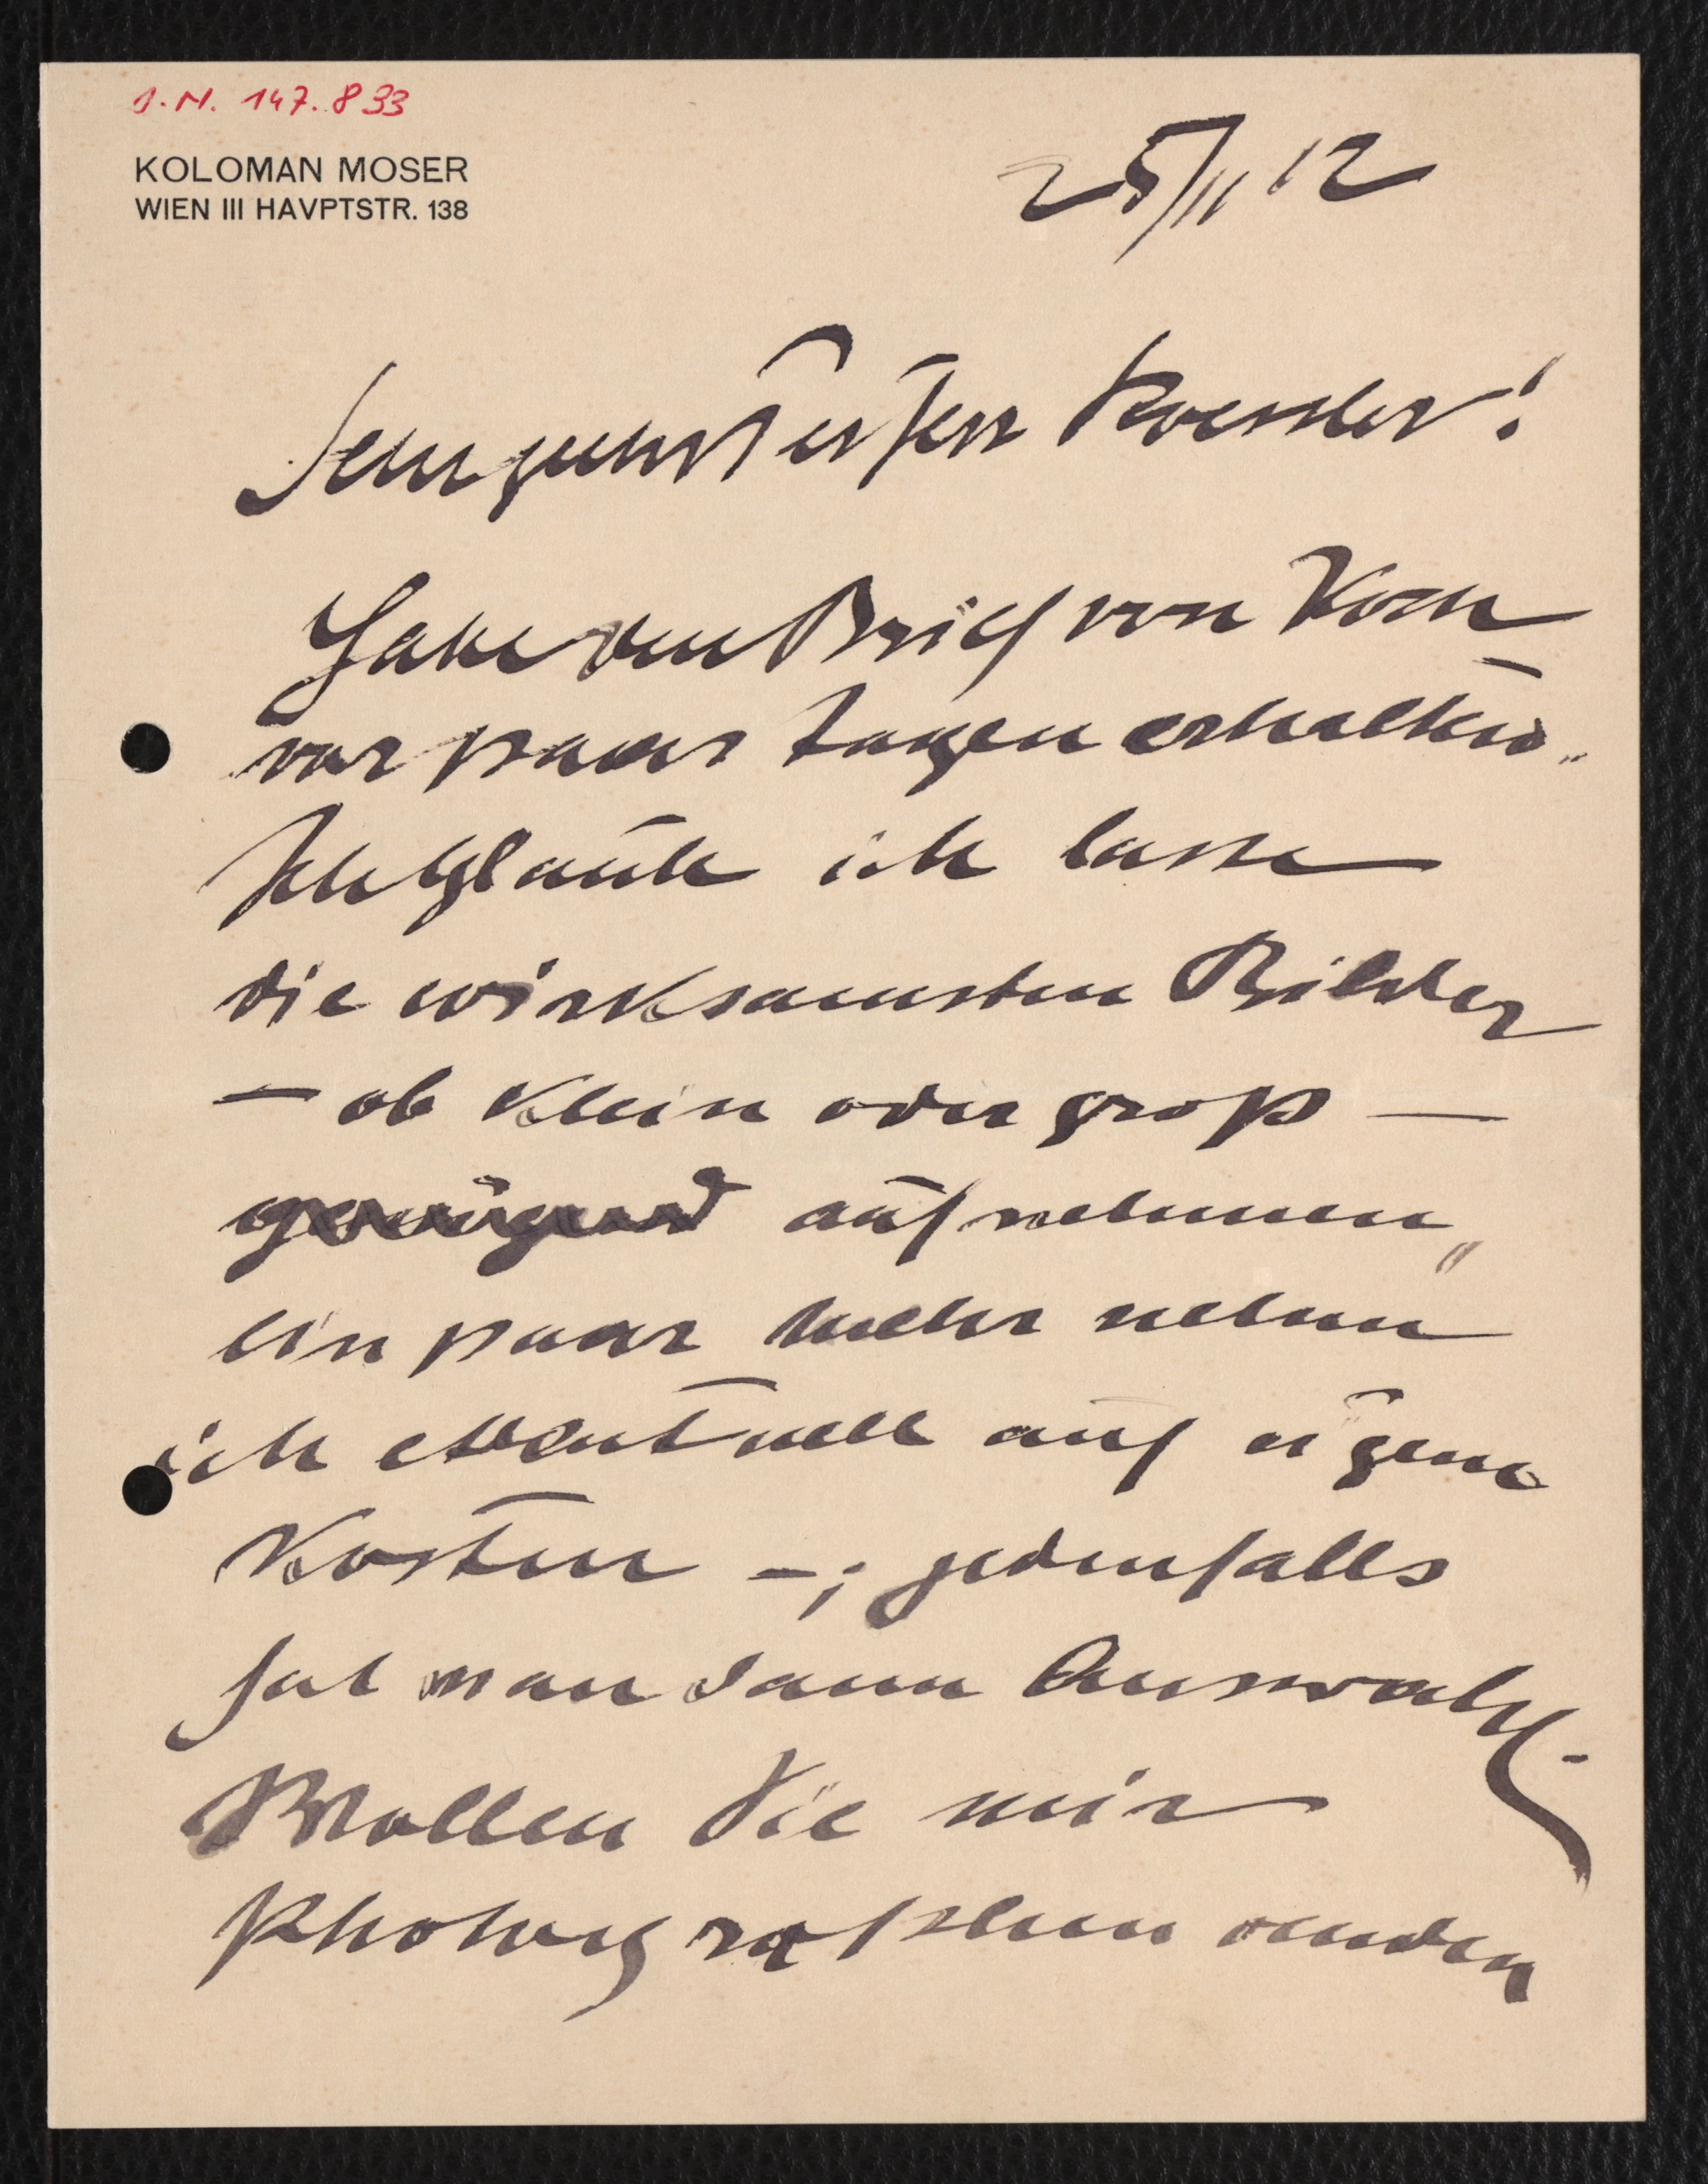 I.N. 147.833
KOLOMAN MOSER
WIEN III HAVPTSTR. 138
25/II 12
Sehr geehrter Herr Roessler!
Habe den Brief von Koch
vor paar Tagen erhalten.
Ich glaube ich lasse
die wirksamsten Bilder
— ob klein oder gross —
genügend aufnehmen,
ein paar mehr nehme
ich eventuell auf eigene
Kosten —; jedenfalls
hat man dann Auswahl.
Wollen Sie mir
Photographen senden